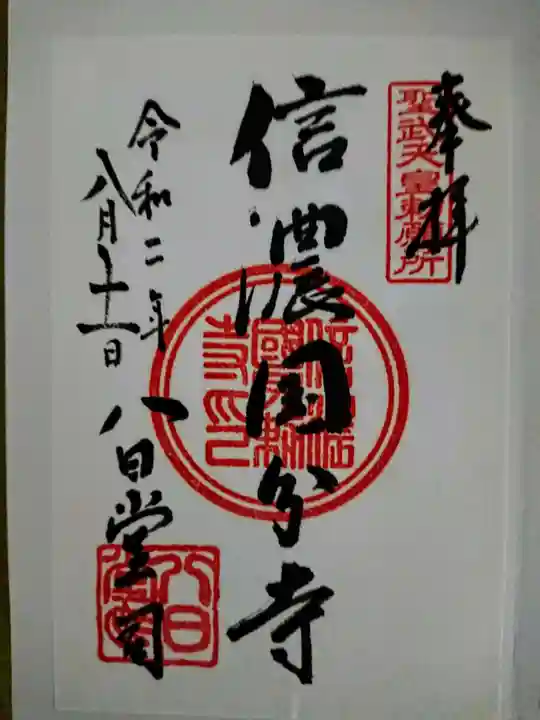 奉拝
聖武天皇勅願所
信濃国分寺
令和二年
八月十一日
八日堂